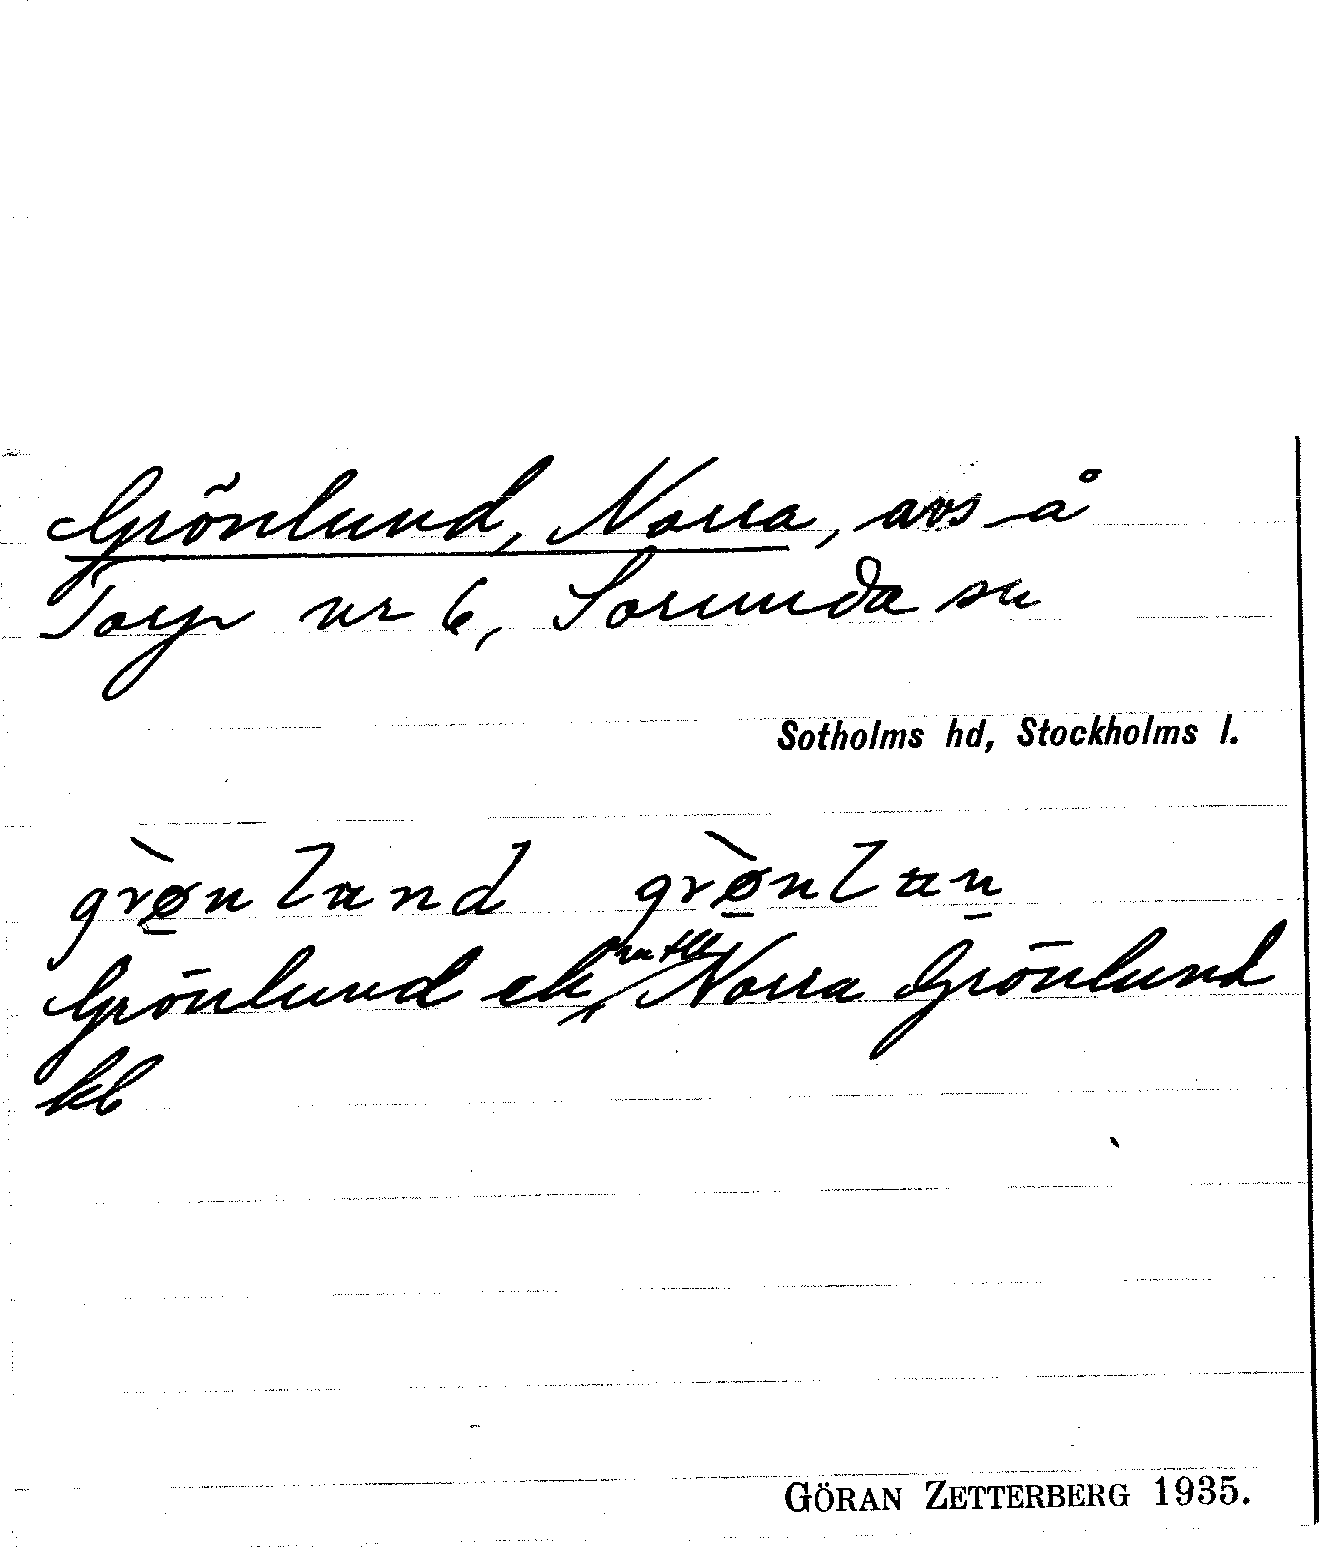 Grönlund, Norra, avs å
Torp nr 6, Sorunda sn
Sotholms hd, Stockholms l.
grø̀nlund grø̀nlun
Grönlund ek, Norra Grönlund
kb
GÖRAN ZETTERBERG 1935.